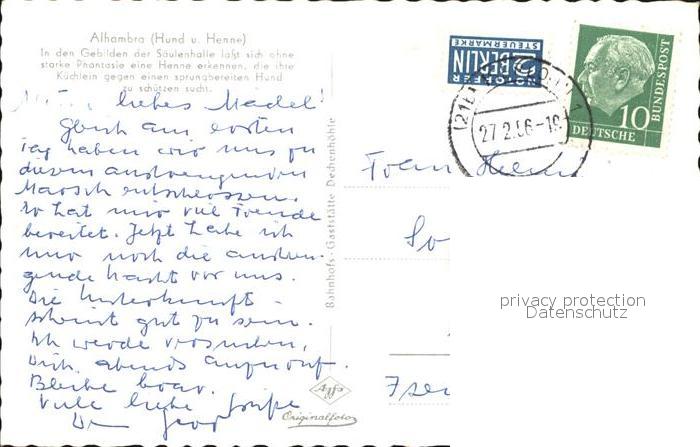 Alhambra (Hund u. Henne)
In den Gebilden der Säulenhalle läßt sich ohne
starke Phantasie eine Henne erkennen, die ihre
Küchlein gegen einen sprungbereiten Hund
zu schützen sucht.
liebes Mädel!
Gleich am ersten
Tag haben wir uns zu
diesem anstrengenden
Marsch entschlossen.
Er hat mir viel Freude
bereitet. Jetzt habe ich
nur noch die anstren-
gende Nacht vor uns.
Die Unterkunft
scheint gut zu sein.
Ich werde versuchen,
Dich abends anzuruf.
Bleibe brav.
Viele liebe Grüße
Bahnhofs-Gaststätte Dechenhöhle
Agfa
Originalfoto
NOTOPFER
2 BERLIN
STEUERMARKE
27.2.56-18
10
DEUTSCHE
BUNDESPOST
Iser
privacy protection
Datenschutz